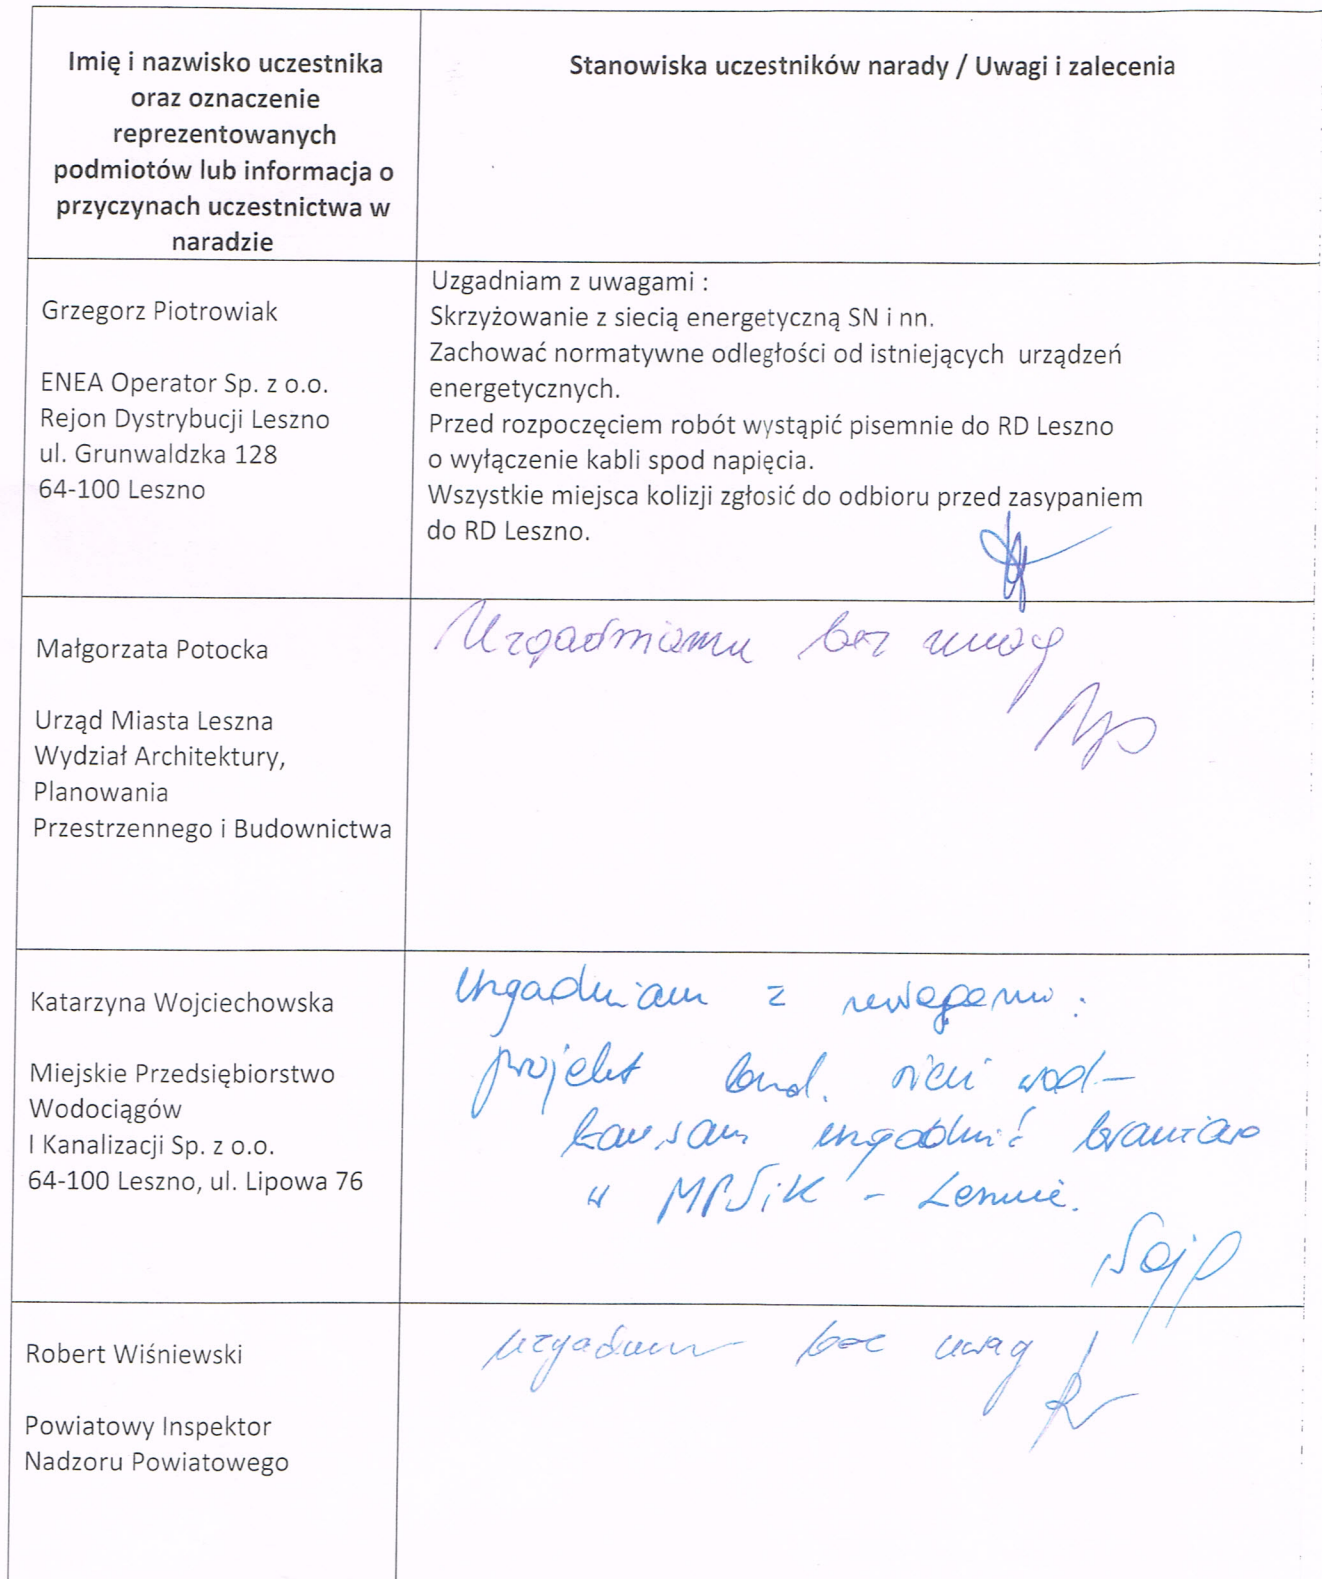 Imię i nazwisko uczestnika
oraz oznaczenie
reprezentowanych
podmiotów lub informacja o
przyczynach uczestnictwa w
naradzie
Stanowiska uczestników narady / Uwagi i zalecenia
Grzegorz Piotrowiak
ENEA Operator Sp. z o.o.
Rejon Dystrybucji Leszno
ul. Grunwaldzka 128
64-100 Leszno
Uzgadniam z uwagami :
Skrzyżowanie z siecią energetyczną SN i nn.
Zachować normatywne odległości od istniejących urządzeń
energetycznych.
Przed rozpoczęciem robót wystąpić pisemnie do RD Leszno
o wyłączenie kabli spod napięcia.
Wszystkie miejsca kolizji zgłosić do odbioru przed zasypaniem
do RD Leszno.
Małgorzata Potocka
Urząd Miasta Leszna
Wydział Architektury,
Planowania
Przestrzennego i Budownictwa
Uzgadniam bez uwag
Katarzyna Wojciechowska
Miejskie Przedsiębiorstwo
Wodociągów
I Kanalizacji Sp. z o.o.
64-100 Leszno, ul. Lipowa 76
Uzgadniam z uwagami:
projekt bud. sieci wod-
uzgodnić branżowo
w MPWiK - Leszno.
Robert Wiśniewski
Powiatowy Inspektor
Nadzoru Powiatowego
uzgadniam bez uwag